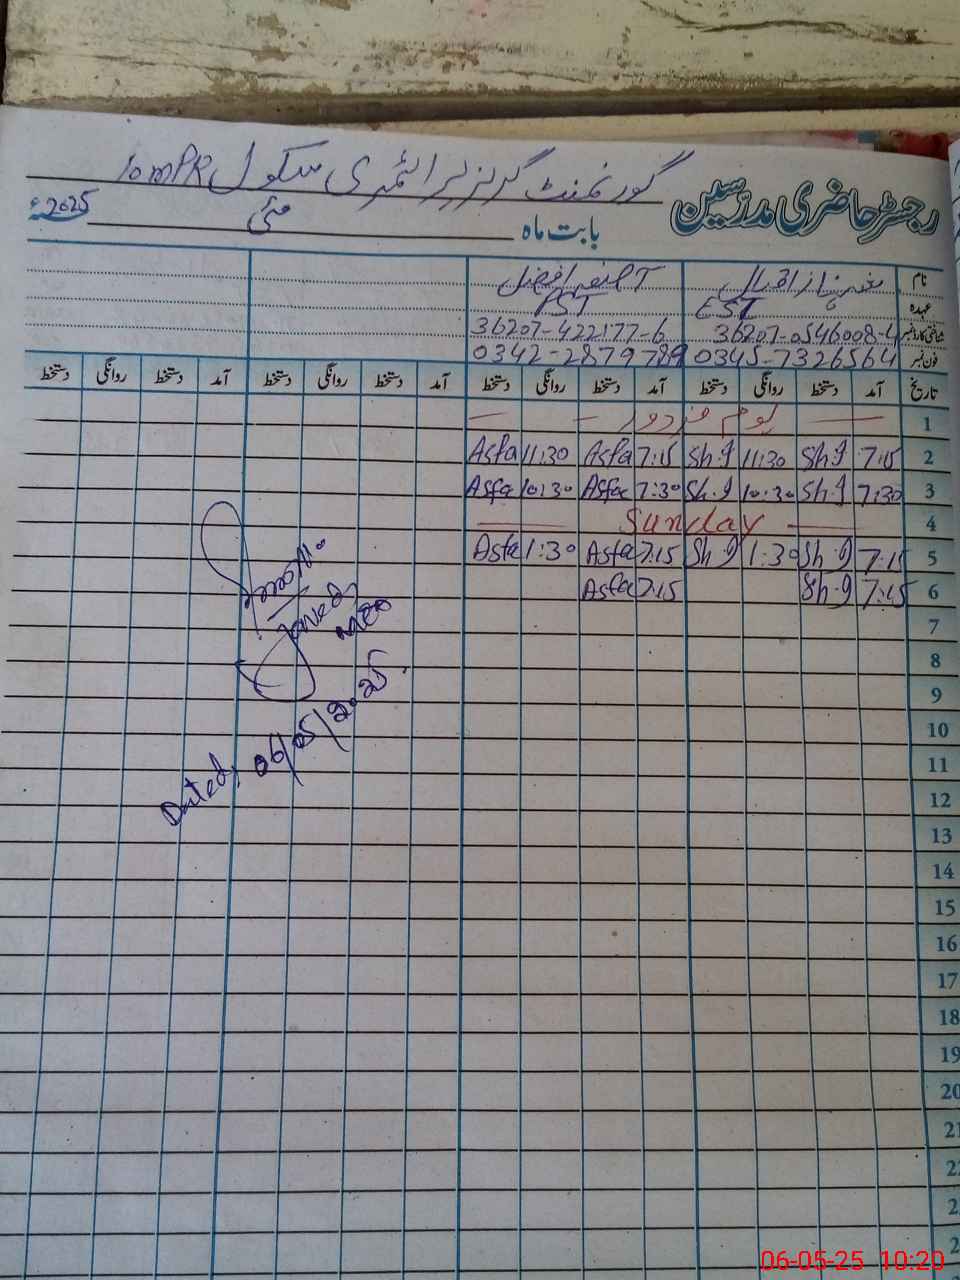 گورنمنٹ گرلز پرائمری سکول 10 mPR
رجسٹر حاضری مدرسین
بابت ماہ مئی 2025ء
نام شہناز اقبال آصفہ افضل
عہدہ EST PST
شناختی کارڈ نمبر 36207-0546008-4 36207-422177-6
فون نمبر 0345-7326564 0342-2879789
تاریخ آمد دستخط روانگی دستخط آمد دستخط روانگی دستخط آمد دستخط روانگی دستخط آمد دستخط روانگی دستخط
1 یوم مزدور
2 7:15 Sh.g 11:30 Sh.g 7:15 Asfa 11:30 Asfa
3 7:30 Sh.g 10:30 Sh.g 7:30 Asfa 10:30 Asfa
4 Sunday
5 7:15 Sh.g 1:30 Sh.g 7:15 Asfa 1:30 Asfa
6 7:15 Sh.g 7:15 Asfa
7
8
9
10
11
12
13
14
15
16
17
18
19
20
21
Javed
Dated, 06/05/2025.
06-05-25 10:20